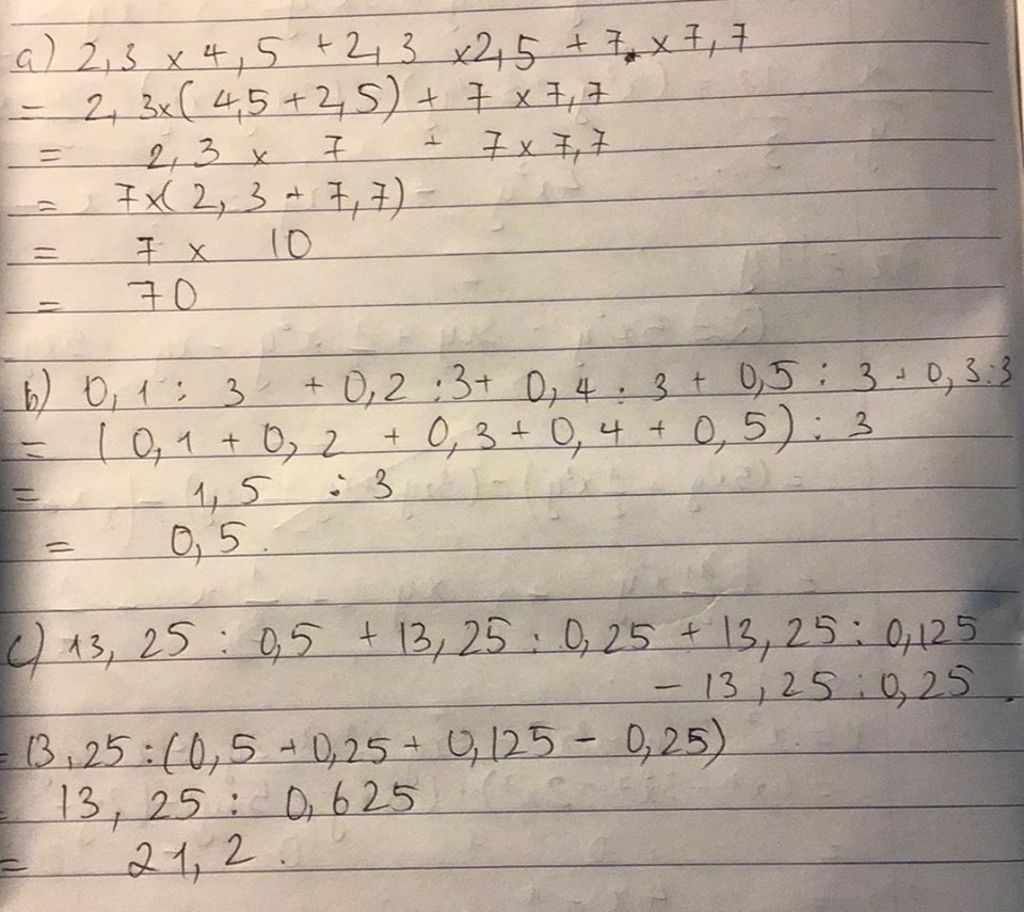 a) 2,3 x 4,5 + 2,3 x 2,5 + 7 x 7,7
= 2,3 x ( 4,5 + 2,5 ) + 7 x 7,7
= 2,3 x 7 + 7 x 7,7
= 7 x ( 2,3 + 7,7 )
= 7 x 10
= 70
b) 0,1 : 3 + 0,2 : 3 + 0,4 : 3 + 0,5 : 3 + 0,3 : 3
= ( 0,1 + 0,2 + 0,3 + 0,4 + 0,5 ) : 3
= 1,5 : 3
= 0,5.
c) 13,25 : 0,5 + 13,25 : 0,25 + 13,25 : 0,125
- 13,25 : 0,25.
= 13,25 : ( 0,5 + 0,25 + 0,125 - 0,25 )
= 13,25 : 0,625
= 21,2.